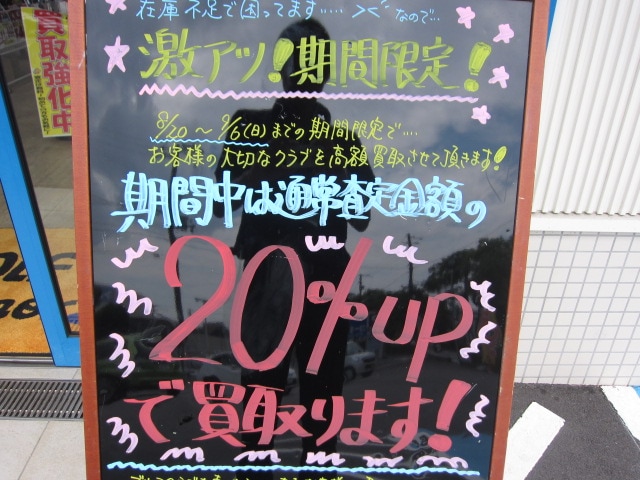 在庫不足で困ってます.... ><なので...
激アツ!期間限定!
8/20 〜 9/6(日)までの期間限定で....
お客様の大切なクラブを高額買取させて頂きます!
期間中は通常査定金額の
20%up
で買取ります!
買取強化中